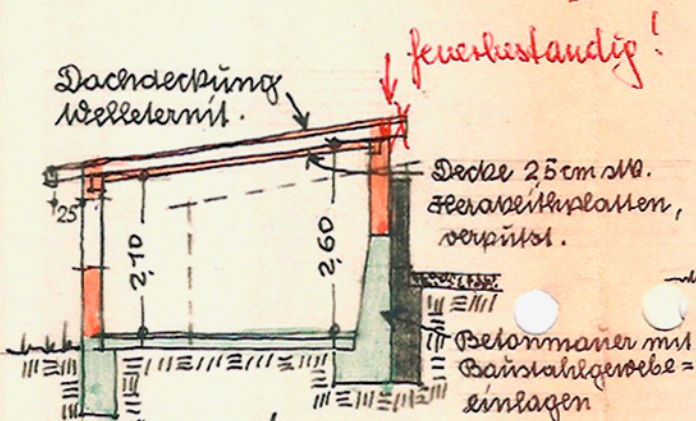 feuerbeständig!
Dachdeckung
Welleternit.
Decke 2,5 cm stk.
Heraklithplatten,
verputzt.
25
2,10
2,60
Betonmauer mit
Baustahlgewebe=
einlagen